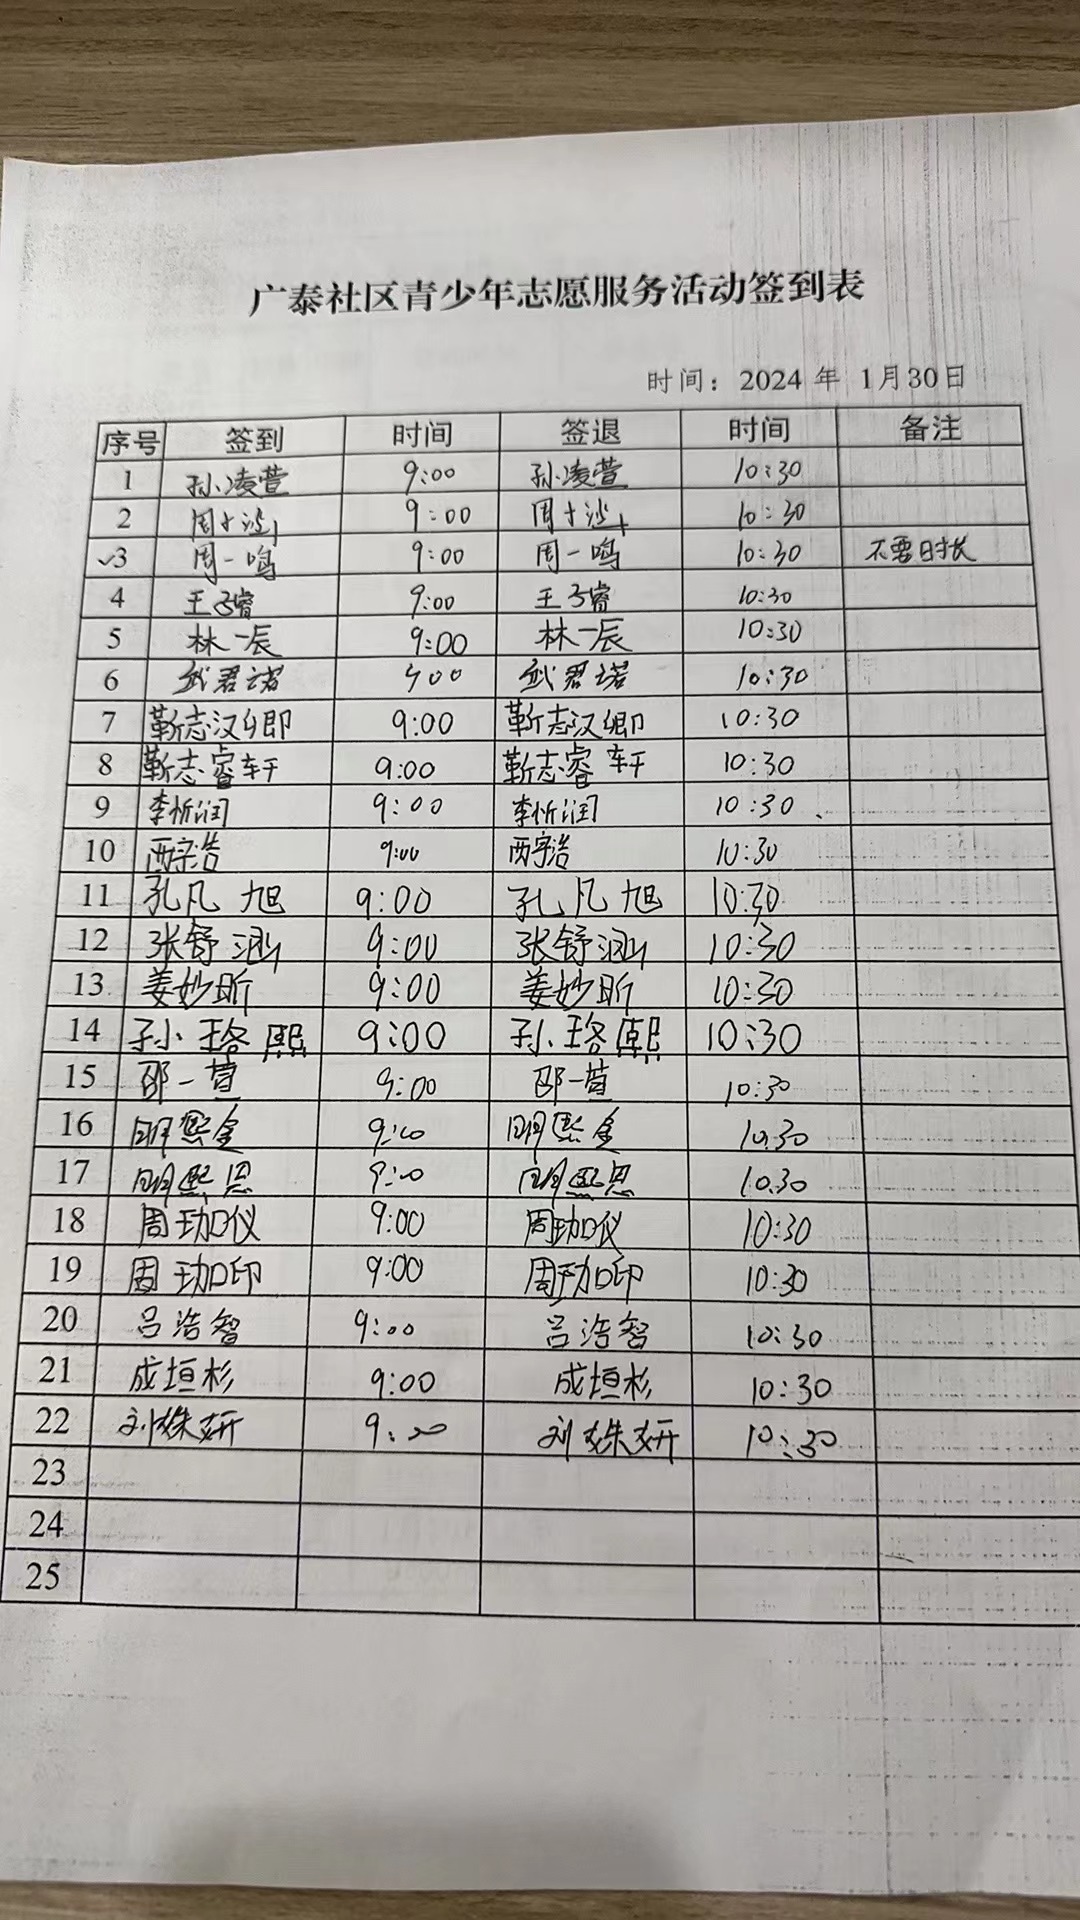 广泰社区青少年志愿服务活动签到表
时间：2024 年 1月30日
序号 签到 时间 签退 时间 备注
1 孙凌萱 9:00 孙凌萱 10:30
2 周 9:00 周 10:30
✓3 周一鸣 9:00 周一鸣 10:30 不要时长
4 王子睿 9:00 王子睿 10:30
5 林一辰 9:00 林一辰 10:30
6 武君诺 900 武君诺 10:30
7 靳志汉卿 9:00 靳志汉卿 10:30
8 靳志睿轩 9:00 靳志睿轩 10:30
9 李忻润 9:00 李忻润 10:30
10 宇浩 9:00 宇浩 10:30
11 孔凡旭 9:00 孔凡旭 10:30
12 张舒涵 9:00 张舒涵 10:30
13 姜妙昕 9:00 姜妙昕 10:30
14 孙珞熙 9:00 孙珞熙 10:30
15 邵一萱 9:00 邵一萱 10:30
16 明熙金 9:00 明熙金 10:30
17 明熙恩 9:00 明熙恩 10:30
18 周珈仪 9:00 周珈仪 10:30
19 周珈印 9:00 周珈印 10:30
20 吕浩智 9:00 吕浩智 10:30
21 成垣杉 9:00 成垣杉 10:30
22 刘姝妍 9:00 刘姝妍 10:30
23
24
25